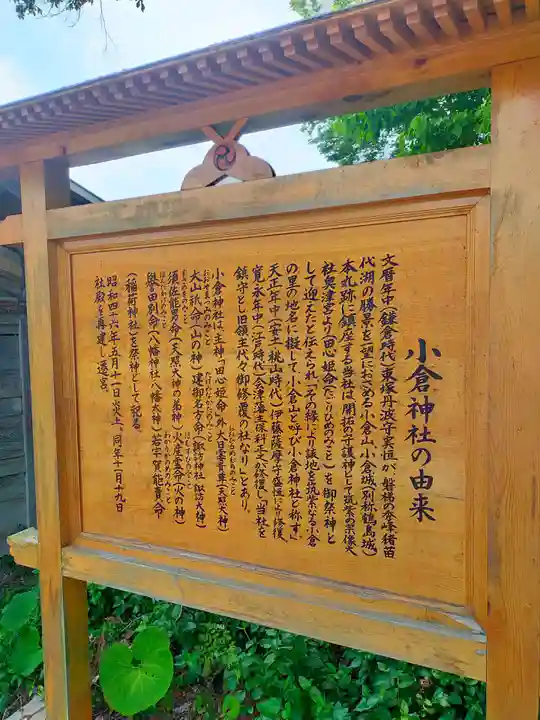 小倉神社の由来
文暦年中(鎌倉時代)東塚丹波守実恒が、磐梯の奇峰猪苗
代湖の勝景を一望におさめる小倉山、小倉城(別称鶴島城)
本丸跡に鎮座する当社は開拓の守護神として筑紫の宗像大
社奥津宮より田心姫命(たごりひめのみこと)を御祭神と
して迎えたと伝えられ「その縁により該地を筑紫なる小倉
の里の地名に擬して小倉山と呼び小倉神社と称す」
天正年中(安土桃山時代)伊藤薩摩守盛恒により修復
寛永年中(江戸時代)会津藩主保科正之が修復し「当社を
鎮守とし旧領主代々御修覆の社なり」とあり、
小倉神社は、主神・田心姫命の外、大日孁貴尊(天照大神)
大山祇命(山の神)建御名方命(諏訪神社・諏訪大神)
須佐能男命(天照大神の弟神)火産霊命(火の神)
誉田別命(八幡神社・八幡大神)若宇賀能売命
(稲荷神社)を祭神として記る。
昭和四十六年五月十一日火災。同年十一月十九日
社殿を再建し遷宮。